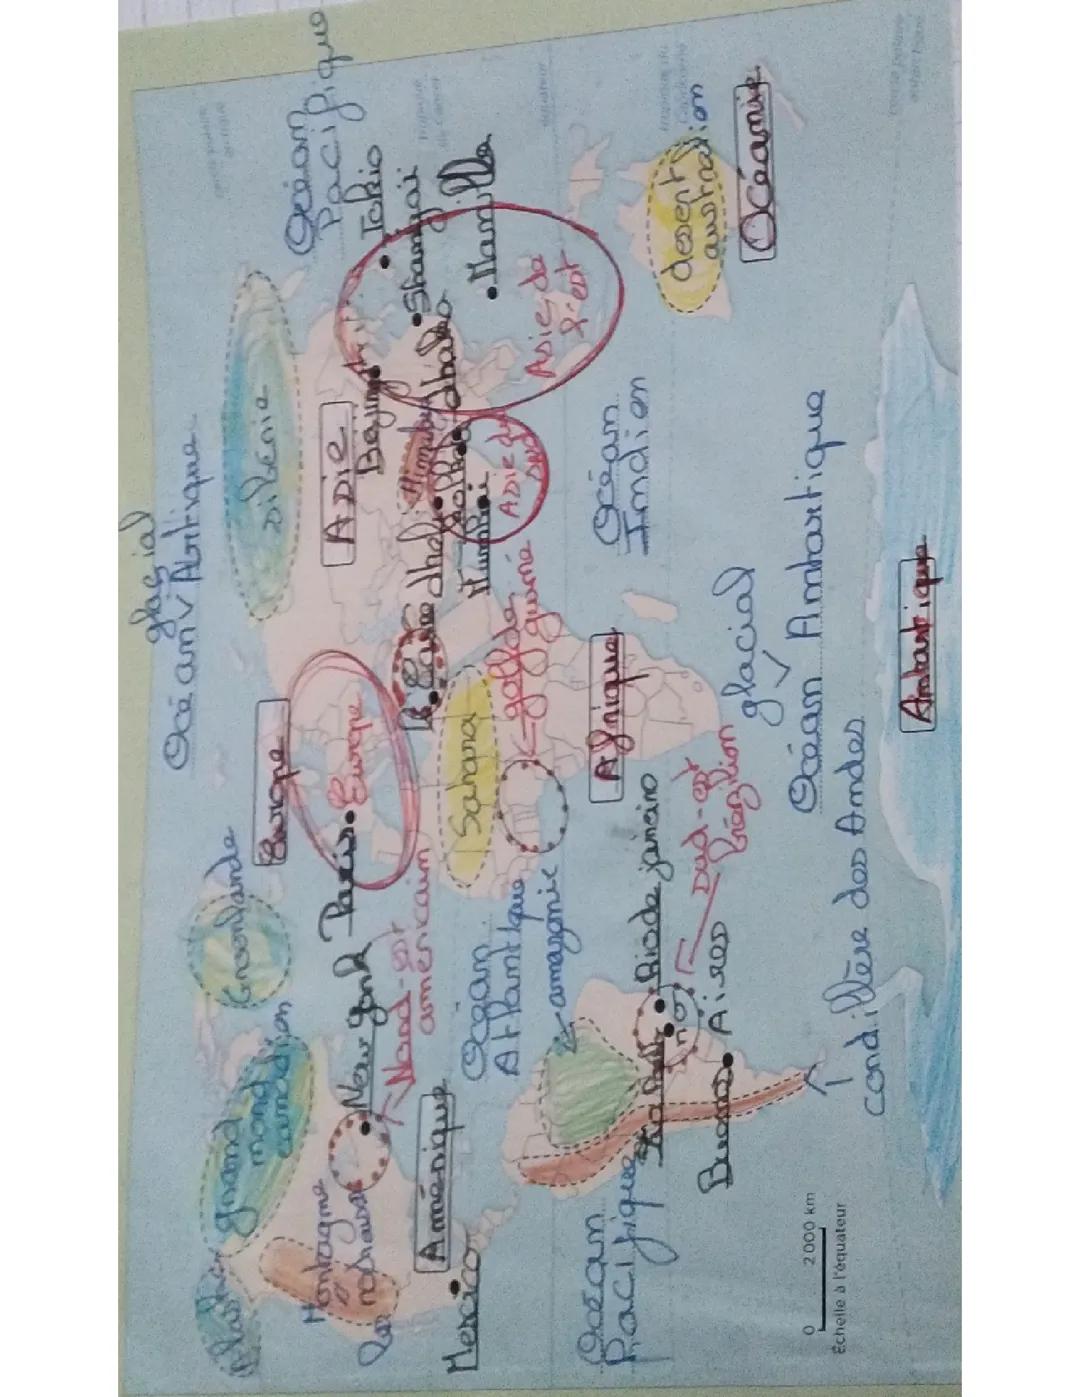 glacial
Océan v Artique
Océan
Pacifique
Sibérie
Groenlande
grand
nord
canadien
Alaska
Europe
ASIE
Tokio
Beijing
Shangaï
Manille
Himalaya
dhaka
dheli
kolkata
Mumbaï
Asie de
l'est
Asie du
sud
Europe
Paris
New york
Montagne
rocheuse
les
Nord-est
américain
Amérique
Mexico
Sahara
golfe de
guiné
Océan
Atlantique
amazonie
Afrique
Océan
Indien
desert
australien
Océanie
Océan
Pacifique
Rio de janeiro
Sud-est
brésilien
Buenos Aires
glacial
Océan v Antartique
condillère des Andes
Antartique
équateur
0 2 000 km
Échelle à l'équateur